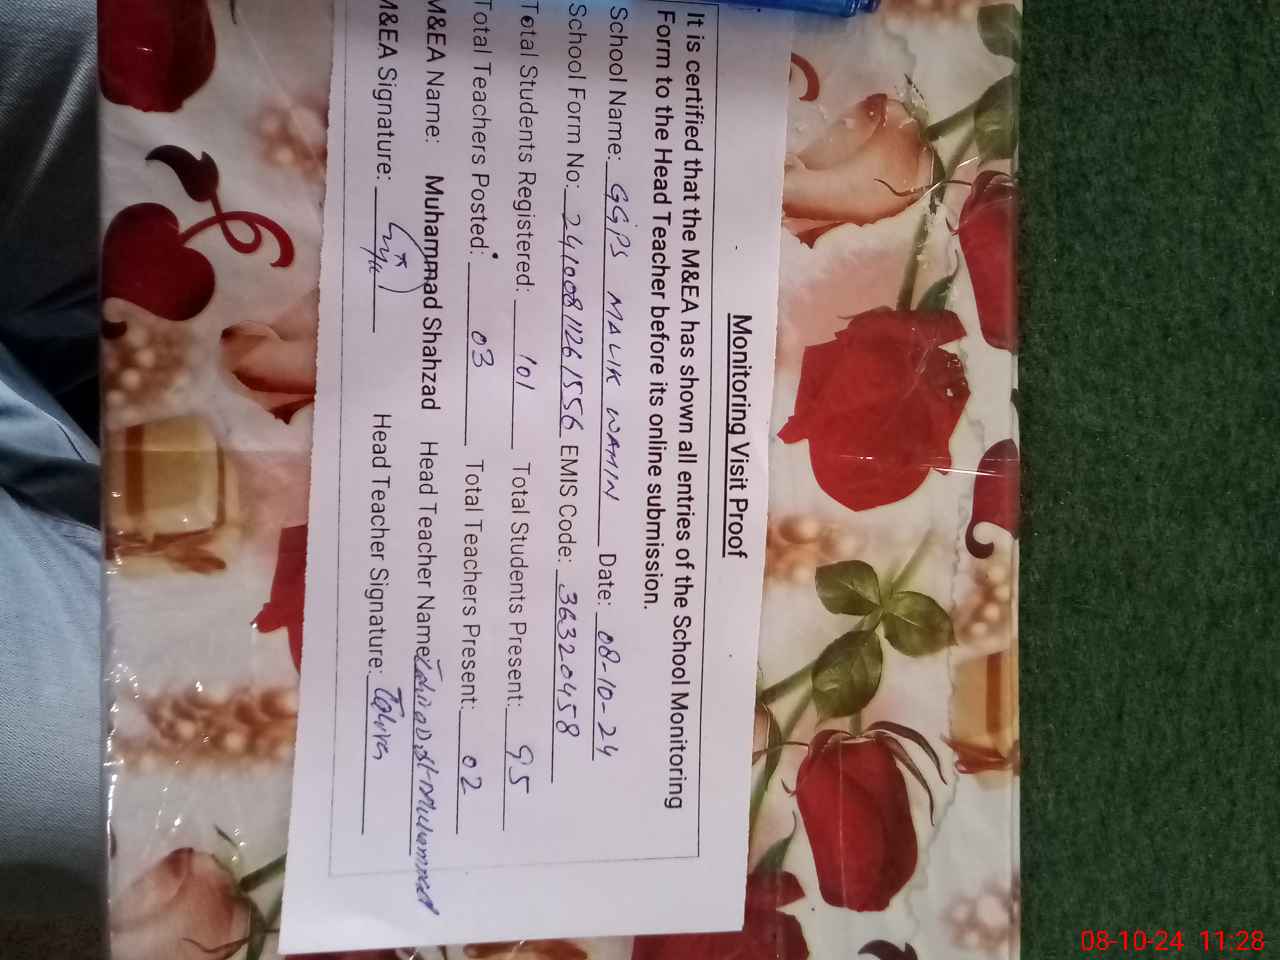 Monitoring Visit Proof
It is certified that the M&EA has shown all entries of the School Monitoring
Form to the Head Teacher before its online submission.
School Name: GGPS MALIK WAMIN Date: 08-10-24
School Form No: 24100811261556 EMIS Code: 36320458
Total Students Registered: 101 Total Students Present: 95
Total Teachers Posted: 03 Total Teachers Present: 02
M&EA Name: Muhammad Shahzad Head Teacher Name: Muhammad
M&EA Signature: Head Teacher Signature: Tahira
08-10-24 11:28